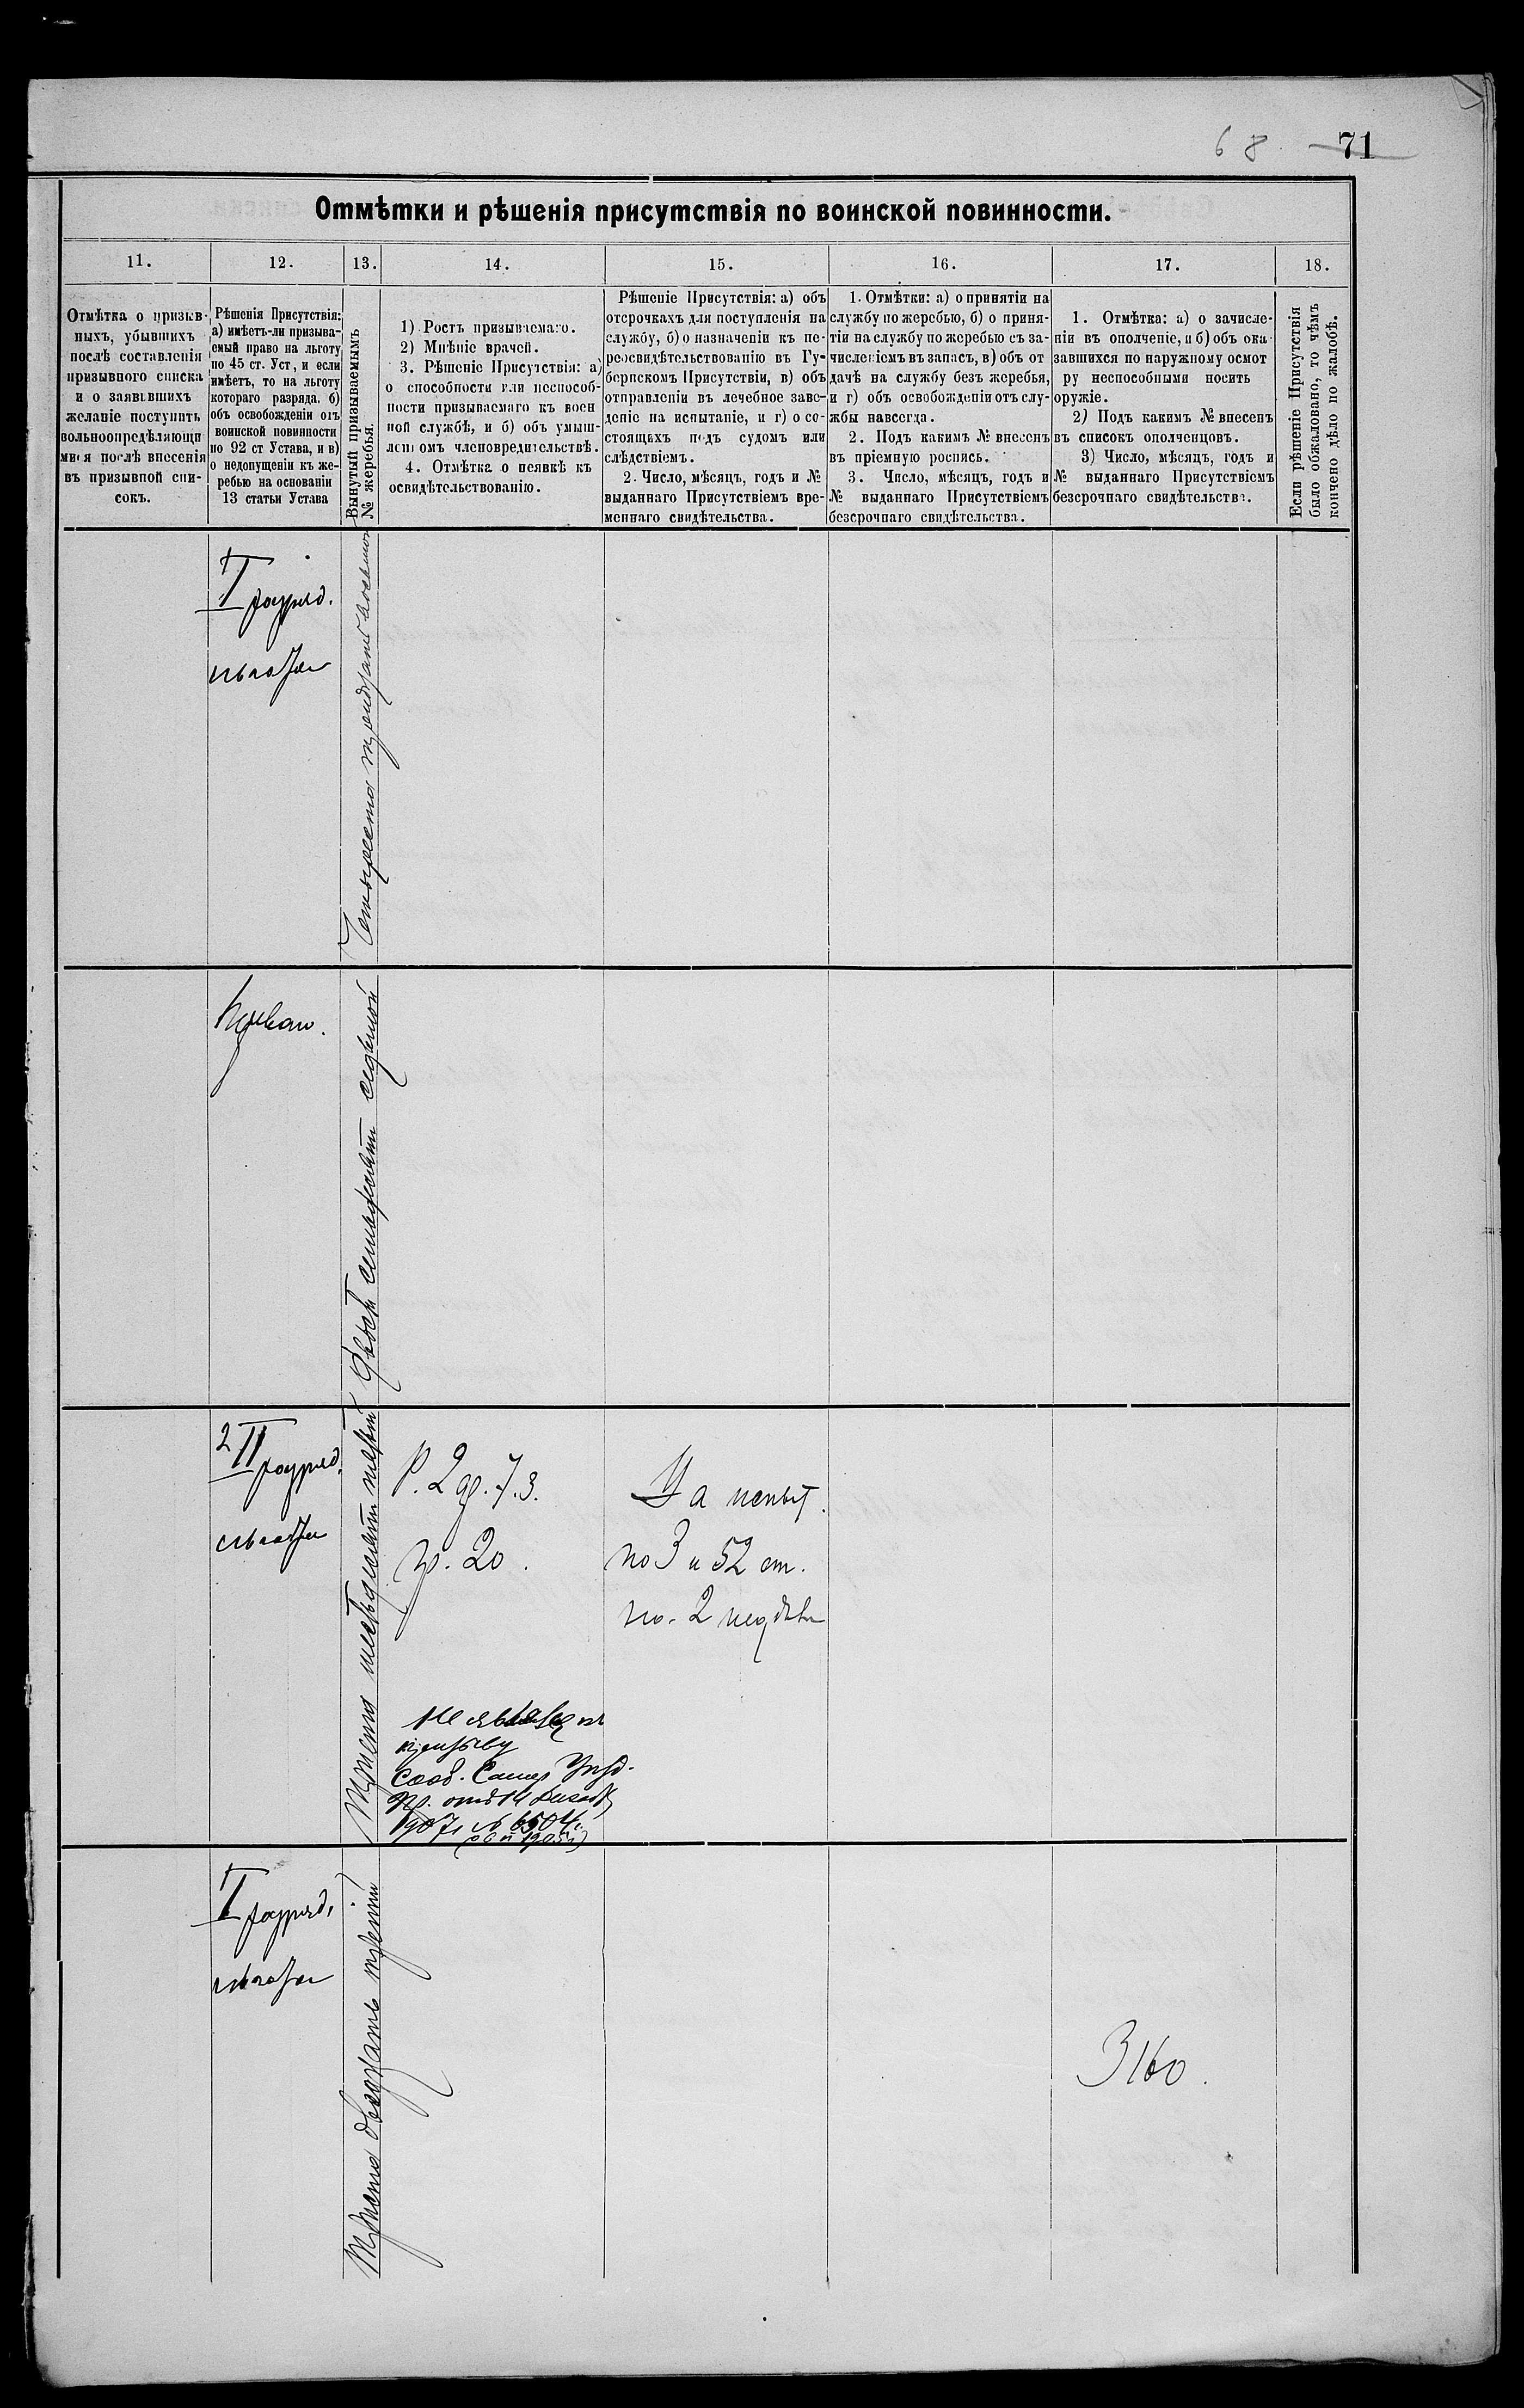 68 71
Отмѣтки и рѣшенія присутствія по воинской повинности.
11. 12. 13. 14. 15. 16. 17. 18.
Отмѣтка о призыв-
ныхъ, убывшихъ
послѣ составленія
призывного списка
и о заявившихъ
желаніе поступить
вольноопредѣляющи
мися послѣ внесенія
въ призывной спи-
сокъ.
Рѣшенія Присутствія:
а) имѣетъ-ли призыва-
емый право на льготу
по 45 ст. Уст, и если
имѣетъ, то на льготу
котораго разряда. б)
объ освобожденіи отъ
воинской повинности
по 92 ст Устава, и в)
о недопущеніи къ же-
ребью на основаніи
13 статьи Устава
Вынутый призываемымъ
№ жеребья.
1) Ростъ призываемаго.
2) Мнѣніе врачей.
3. Рѣшеніе Присутствія: а)
о способности или неспособ-
ности призываемаго къ воен
ной службѣ, и б) объ умыш-
ленномъ членовредительствѣ.
4. Отмѣтка о неявкѣ къ
освидѣтельствованію.
Рѣшеніе Присутствія: а) объ
отсрочкахъ для поступленія на
службу, б) о назначеніи къ пе-
реосвидѣтельствованію въ Гу-
бернскомъ Присутствіи, в) объ
отправленіи въ лечебное заве-
деніе на испытаніе, и г) о со-
стоящихъ подъ судомъ или
слѣдствіемъ.
2. Число, мѣсяцъ, годъ и №
выданнаго Присутствіемъ вре-
меннаго свидѣтельства.
1. Отмѣтки: а) о принятіи на
службу по жеребью, б) о приня-
тіи на службу по жеребью съ за-
численіемъ въ запасъ, в) объ от
дачѣ на службу безъ жеребья,
и г) объ освобожденіи отъ слу-
жбы навсегда.
2. Подъ какимъ № внесенъ
въ пріемную роспись.
3. Число, мѣсяцъ, годъ и
№ выданнаго Присутствіемъ
безсрочнаго свидѣтельства.
1. Отмѣтка: а) о зачисле-
ніи въ ополченіе, и б) объ ока
завшихся по наружному осмот
ру неспособными носить
оружіе.
2) Подъ какимъ № внесенъ
въ списокъ ополченцовъ.
3) Число, мѣсяцъ, годъ и
№ выданнаго Присутствіемъ
безсрочнаго свидѣтельства.
Если рѣшеніе Присутствія
было обжаловано, то чѣмъ
кончено дѣло по жалобѣ.
I разряд.
Четыреста тридцать восьмой
Двѣсти семьдесятъ седьмой
2 II разряд.
Триста шестьдесятъ шестой
Р. 2 ар. 7. 3.
пр. 20.
На испыт.
по 3 и 52 ст.
на 2 недѣли
призыву
1907 г № 6504
I разряд.
Триста двадцать третій
3160.